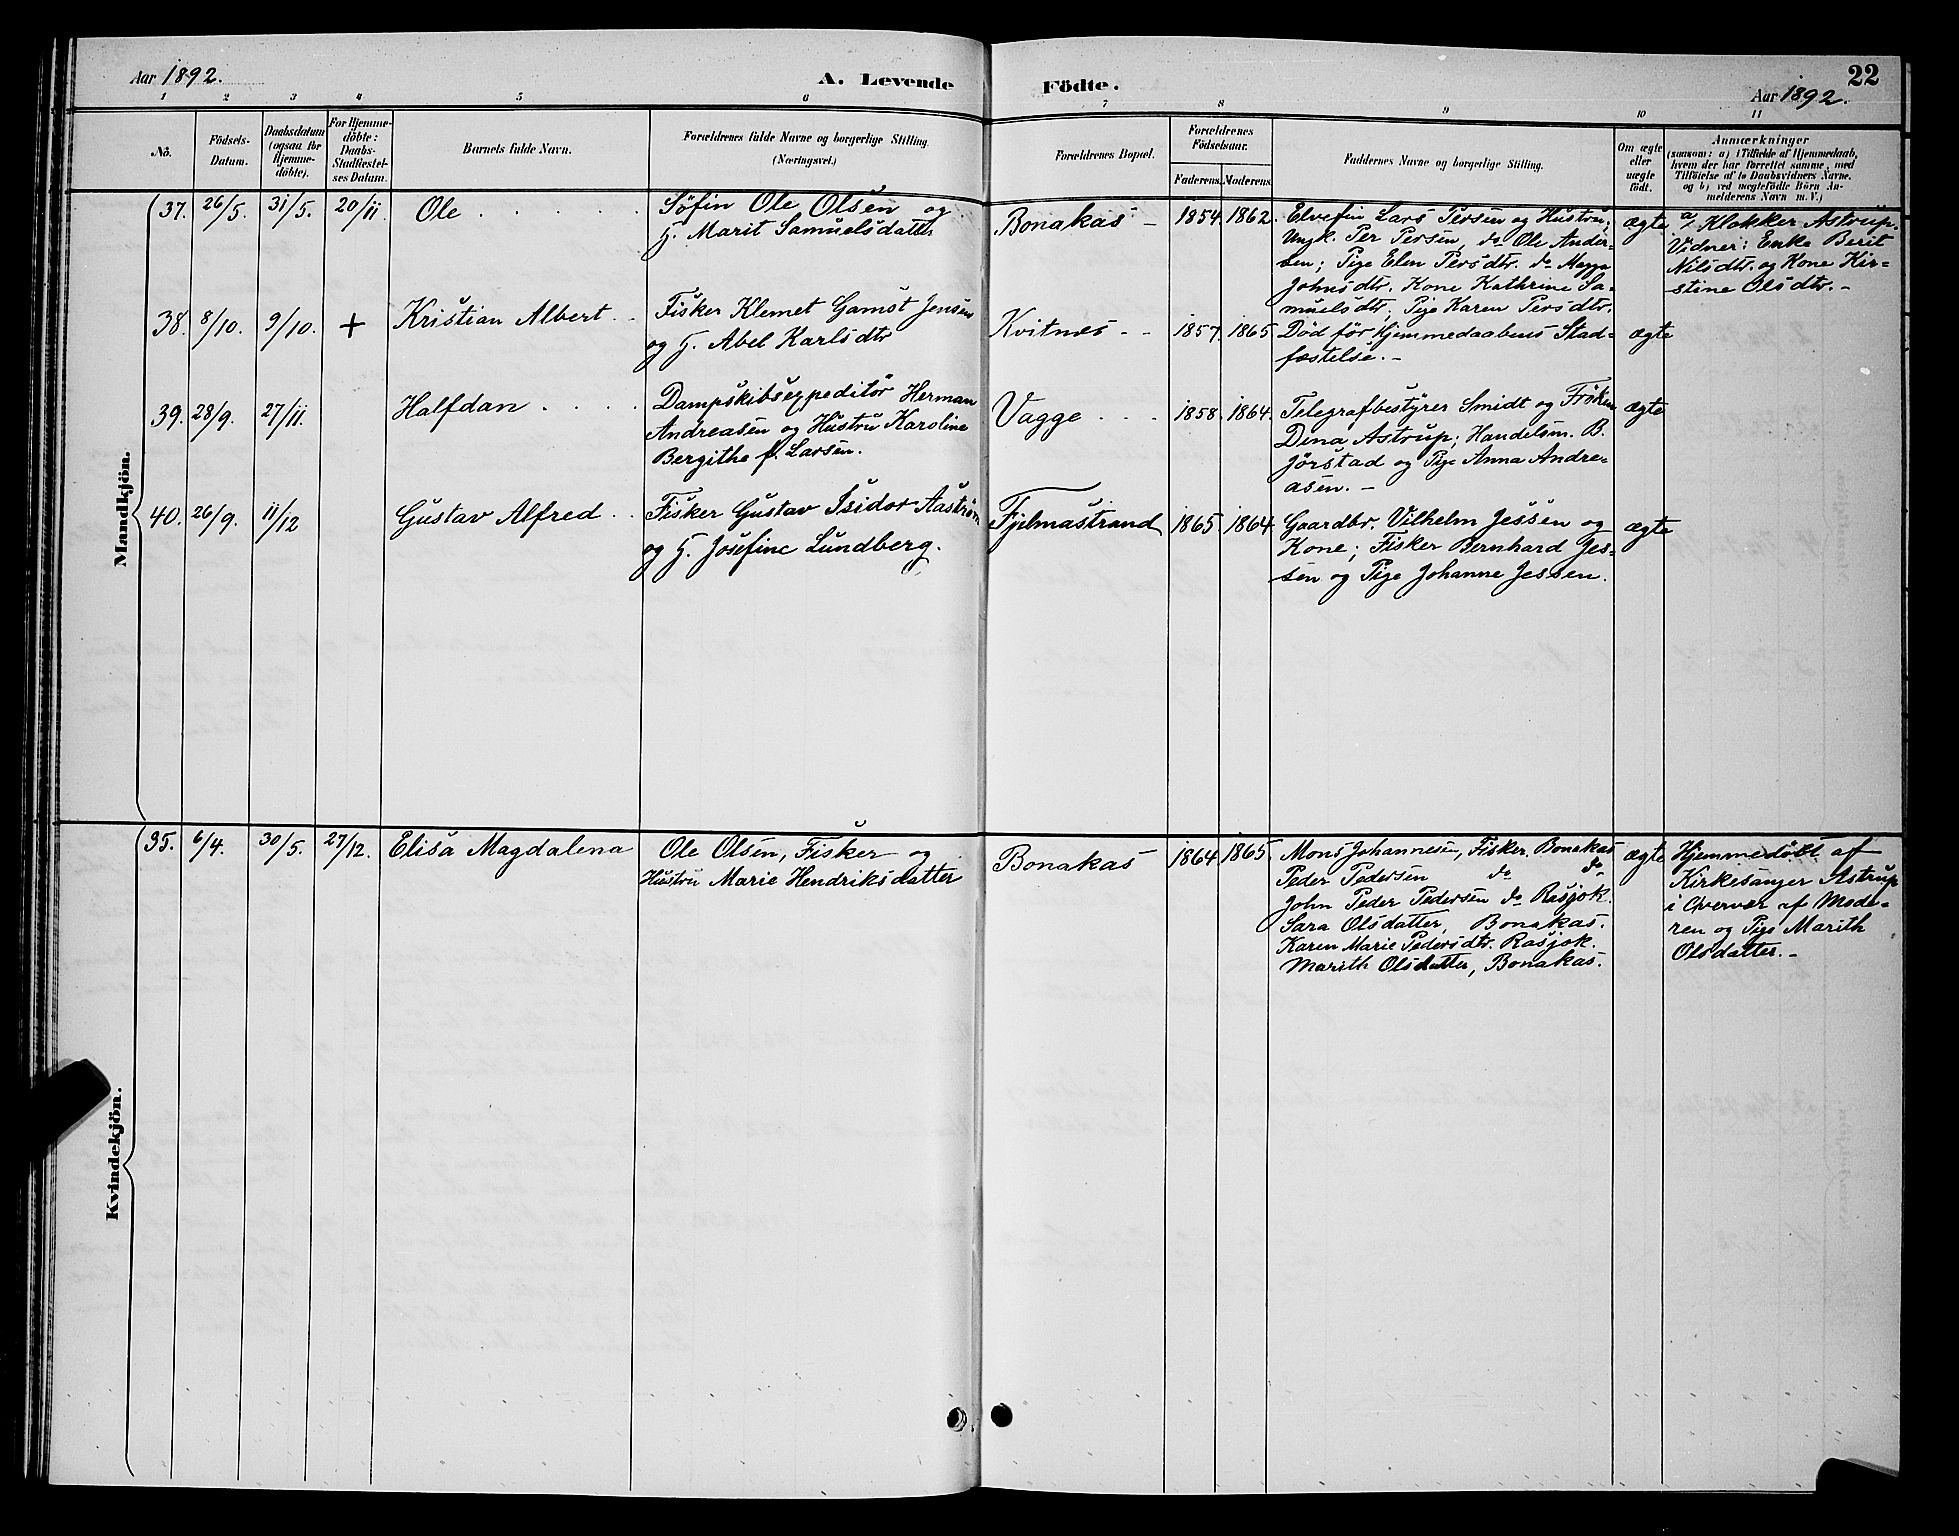 Aar 1892.
A. Levende Födte.
22
Aar 1892.
1 2 3 4 5 6 7 8 9 10 11
No.
Födsels-
Datum.
Daabsdatum
(ogsaa for
Hjemme-
döbte).
For Hjemme-
döbte:
Daabs-
Stadfæstel-
ses Datum.
Barnets fulde Navn.
Forældrenes fulde Navne og borgerlige Stilling.
(Næringsvei.)
Forældrenes Bopæl.
Forældrenes
Födselsaar.
Faderens. Moderens.
Faddernes Navne og borgerlige Stilling.
Om ægte
eller
uægte
født.
Anmærkninger
(saasom: a) i Tilfælde af Hjemmedaab,
hvem der har forrettet samme, med
Tilföielse af to Daabsvidners Navne,
og b) ved uægtefödte Börn An-
melderens Navn m. V.)
Mandkjön.
37. 26/5. 31/5. 20/11 Ole
Søfin Ole Olsen og
H. Marit Samuelsdatter
Bonakas - 1854. 1862.
Elvefin Lars Persen og Hustru;
Ungk. Per Persen, do Ole Ander-
sen; Pige Elen Persdtr. do Magga
Johnsdtr. Kone Kathrine Sa-
muelsdtr, Pige Karen Persdtr.
ægte
a/ Klokker Astrup.
Vidner: Enke Berit
Nilsdtr. og Kone Kir-
stine Olsdtr. -
38. 8/10. 9/10. + Kristian Albert
Fisker Klemet Gamst Jensen
og H. Abel Karlsdtr
Kvitnes - - 1857. 1865
Død før Hjemmedaabens Stad-
fæstelse. -
ægte
39. 28/9. 27/11. Halfdan
Dampskibsexpeditør Herman
Andreasen og Hustru Karoline
Bergithe f. Larsen.
Vagge 1858. 1864.
Telegrafbestyrer Smidt og Frøken
Dina Astrup; Handelsm. B.
Jørstad og Pige Anna Andre-
asen. -
ægte
40. 26/9. 11/12 Gustav Alfred
Fisker Gustav Isidor Aastrøm
og H. Josefine Lundberg.
Fjelmastrand 1865 1864
Gaardbr. Vilhelm Jessen og
Kone; Fisker Bernhard Jes-
sen og Pige Johanne Jessen.
ægte
Kvindekjön.
35. 6/4. 30/5. 27/12. Elisa Magdalena
Ole Olsen, Fisker og
Hustru Marie Hendriksdatter
Bonakas 1864 1865.
Mons Johannesen, Fisker, Bonakas
Peder Pedersen do do
John Peder Pedersen do Rasjok.
Sara Olsdatter, Bonakas.
Karen Marie Pedersdtr. Rasjok.
Marith Olsdatter, Bonakas.
ægte
Hjemmedøbt af
Kirkesanger Astrup
i Overvær af Mode-
ren og Pige Marith
Olsdatter. -